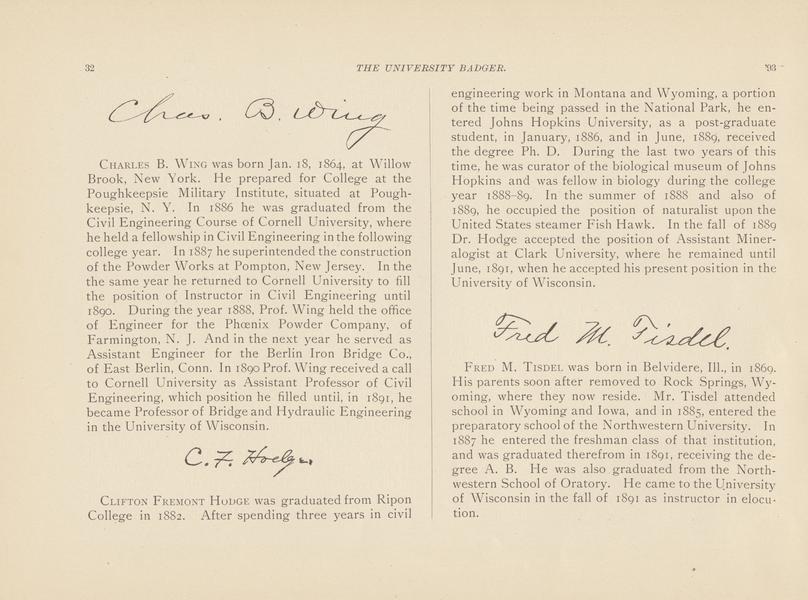 32
THE UNIVERSITY BADGER.
'93
Chas. B. Wing
CHARLES B. WING was born Jan. 18, 1864, at Willow
Brook, New York. He prepared for College at the
Poughkeepsie Military Institute, situated at Pough-
keepsie, N. Y. In 1886 he was graduated from the
Civil Engineering Course of Cornell University, where
he held a fellowship in Civil Engineering in the following
college year. In 1887 he superintended the construction
of the Powder Works at Pompton, New Jersey. In the
the same year he returned to Cornell University to fill
the position of Instructor in Civil Engineering until
1890. During the year 1888, Prof. Wing held the office
of Engineer for the Phœnix Powder Company, of
Farmington, N. J. And in the next year he served as
Assistant Engineer for the Berlin Iron Bridge Co.,
of East Berlin, Conn. In 1890 Prof. Wing received a call
to Cornell University as Assistant Professor of Civil
Engineering, which position he filled until, in 1891, he
became Professor of Bridge and Hydraulic Engineering
in the University of Wisconsin.
C. F. Hodge
CLIFTON FREMONT HODGE was graduated from Ripon
College in 1882. After spending three years in civil
engineering work in Montana and Wyoming, a portion
of the time being passed in the National Park, he en-
tered Johns Hopkins University, as a post-graduate
student, in January, 1886, and in June, 1889, received
the degree Ph. D. During the last two years of this
time, he was curator of the biological museum of Johns
Hopkins and was fellow in biology during the college
year 1888–89. In the summer of 1888 and also of
1889, he occupied the position of naturalist upon the
United States steamer Fish Hawk. In the fall of 1889
Dr. Hodge accepted the position of Assistant Miner-
alogist at Clark University, where he remained until
June, 1891, when he accepted his present position in the
University of Wisconsin.
Fred M. Tisdel.
FRED M. TISDEL was born in Belvidere, Ill., in 1869.
His parents soon after removed to Rock Springs, Wy-
oming, where they now reside. Mr. Tisdel attended
school in Wyoming and Iowa, and in 1885, entered the
preparatory school of the Northwestern University. In
1887 he entered the freshman class of that institution,
and was graduated therefrom in 1891, receiving the de-
gree A. B. He was also graduated from the North-
western School of Oratory. He came to the University
of Wisconsin in the fall of 1891 as instructor in elocu-
tion.